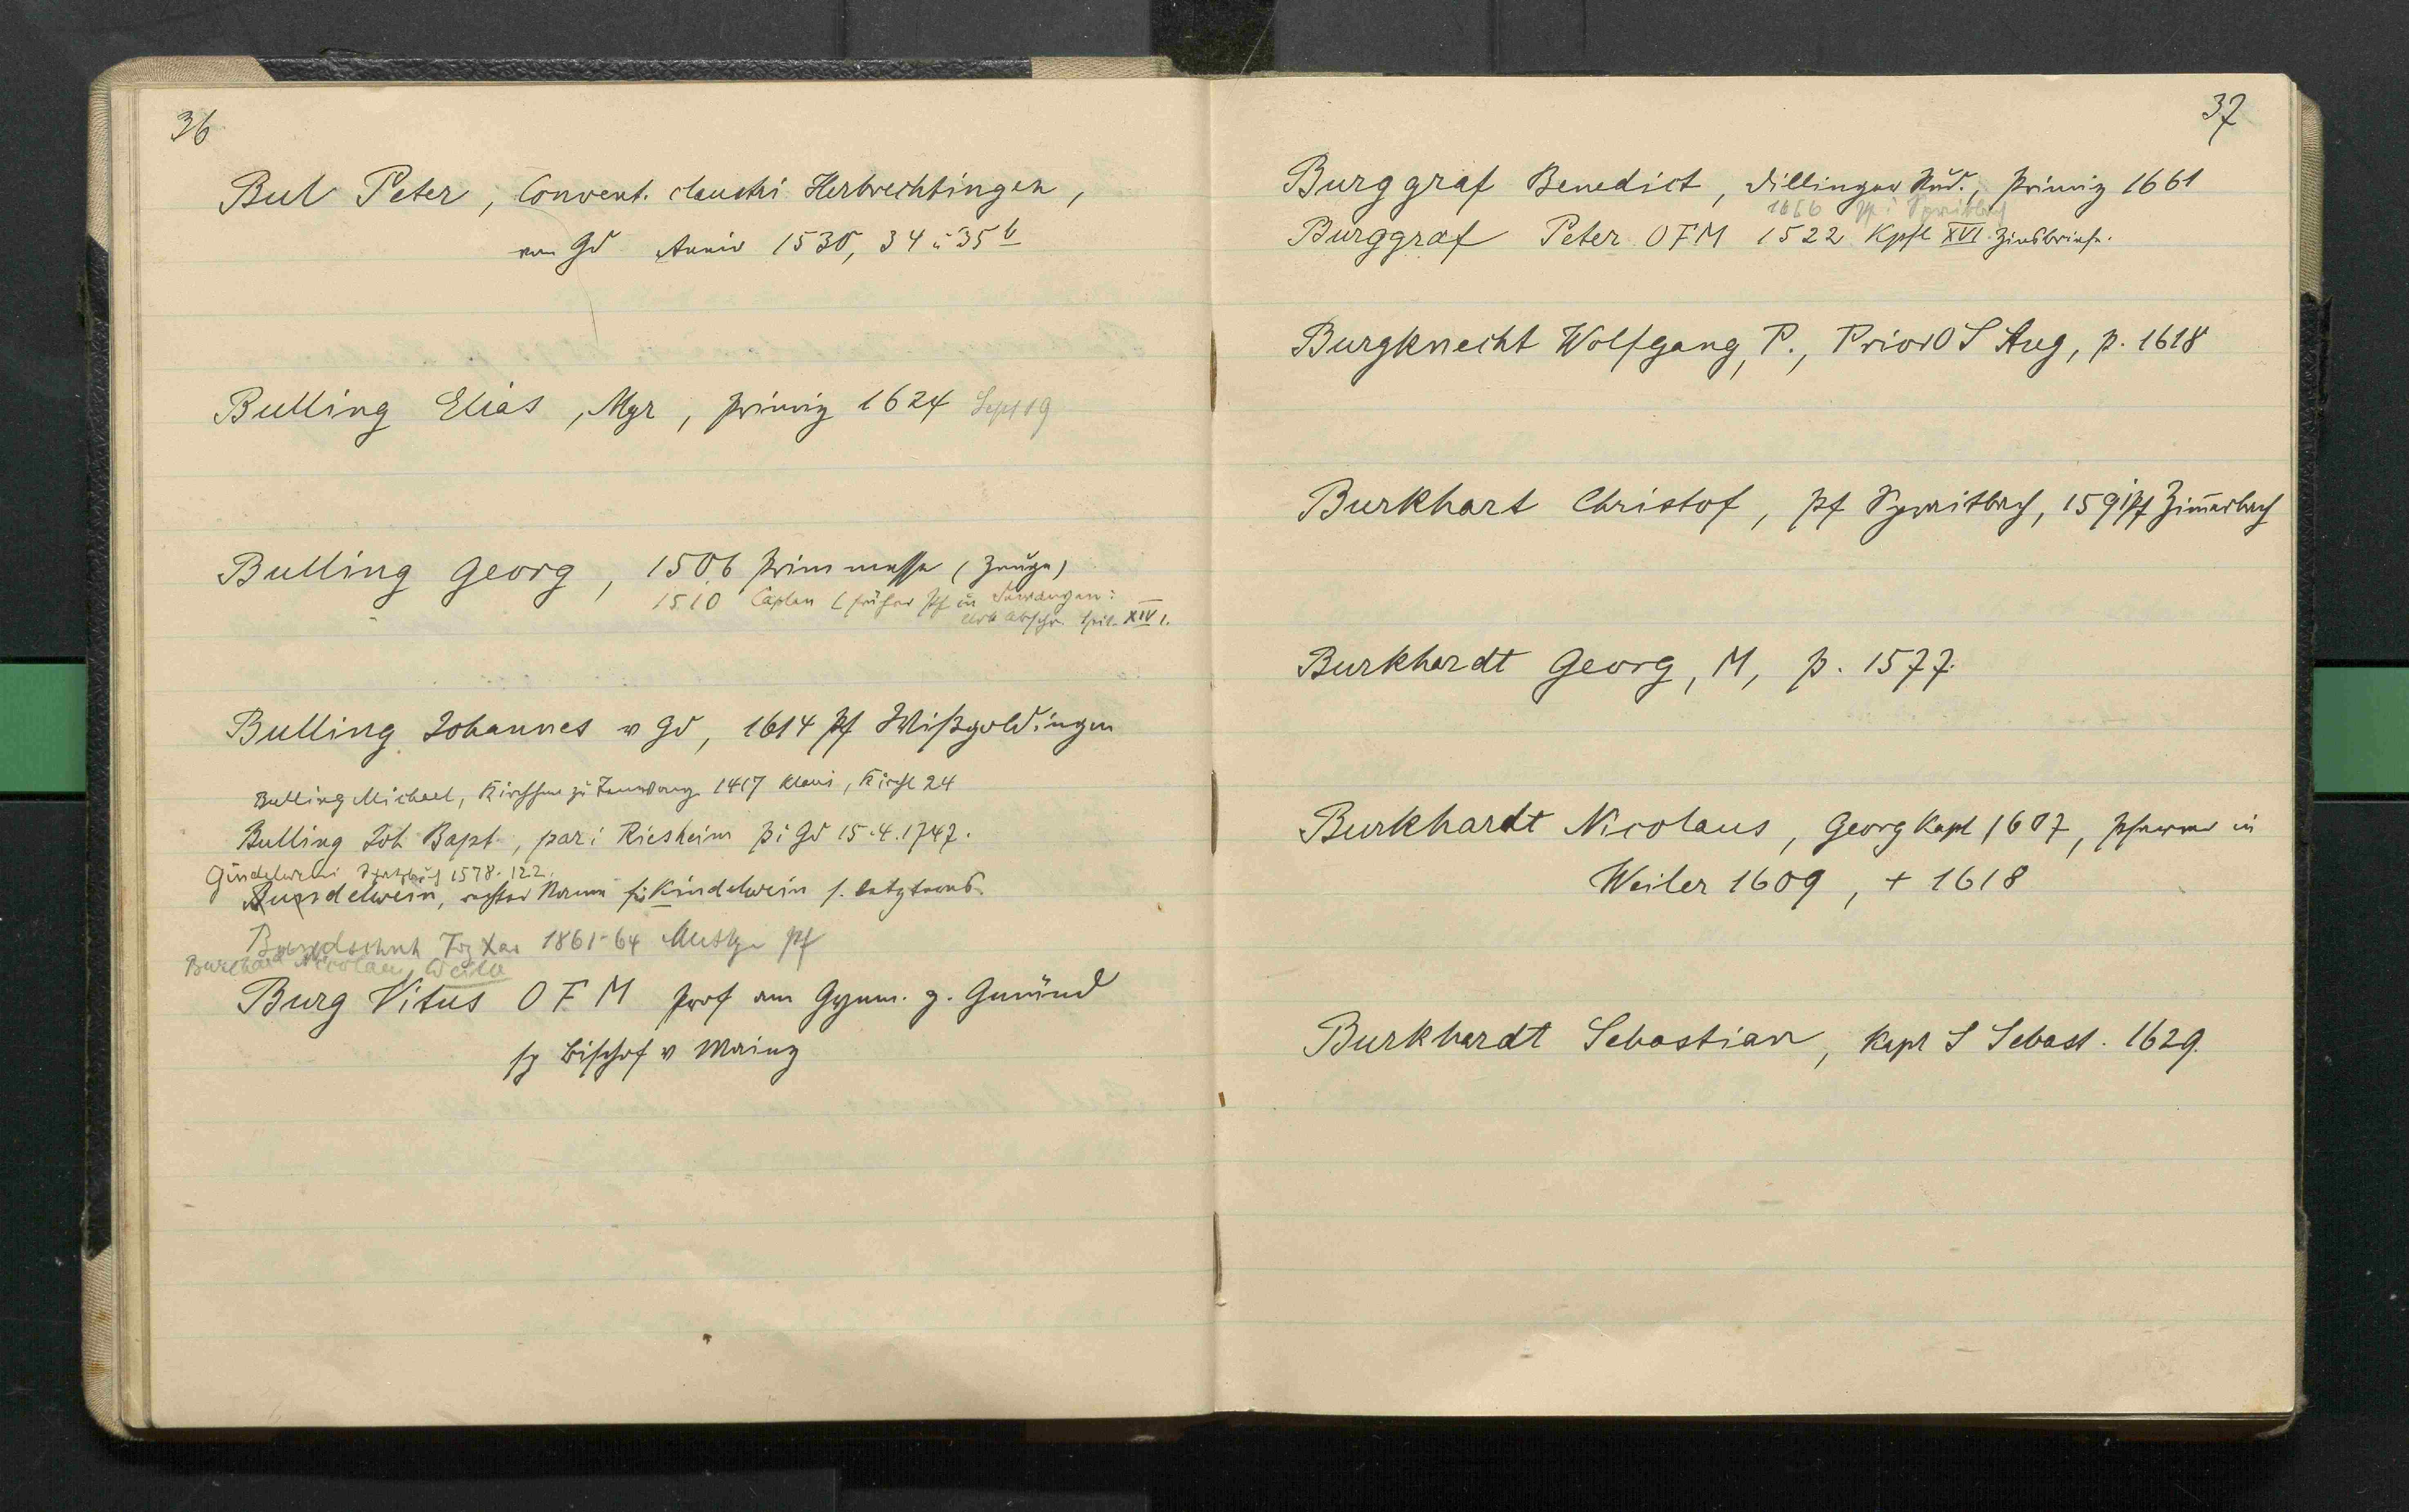 36
Bul Peter, Convent. claustri Herbrechtingen,
von Gd Anniv 1530, 34 u 35 b
Bulling Elias, Mgr, primiz 1624 Sept 19
Bulling Georg, 1506 Primmesse (Zeuge)
1510 Caplan (früher Pf in
XIV 1.
Bulling Johannes v Gd, 1614 Pf Wißgoldingen
Bulling Michael, Kirchherr zu 1417 Kirchl 24
Bulling Joh Bapt., par i Riesheim p i Gd 15.4.1747.
Gündelwein 1578. 122.
Bundelwein, Kindelwein s. letzteres
Bundschuh Frz Xav 1861-64 Pf
Burchard Nicolaus, Weiler
Burg Vitus OFM Prof am Gymn. z. Gmünd
sp Bischof v Mainz
37
Burggraf Benedict, Dillinger Stud., primiz 1661
1666 Pf i Spraitbach
Burggraf Peter OFM 1522 Kpfl XVI Zinsbriefe.
Burgknecht Wolfgang, P., Prior O S Aug, p. 1618
Burkhart Christof, Pf Spraitbach, 1591 Pf Zimerbach
Burkhardt Georg, M, p. 1577.
Burkhardt Nicolaus, Georg Kapl 1607, Pfarrer in
Weiler 1609, + 1618
Burkhardt Sebastian, Kapl S Sebast. 1629.